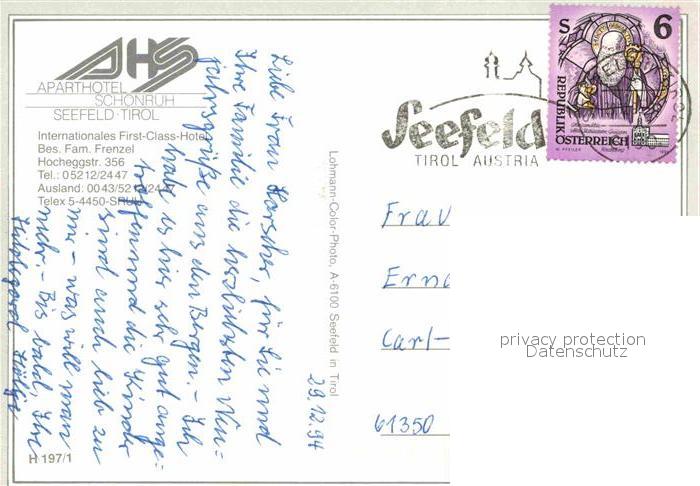 AHS
APARTHOTEL
SCHÖNRUH
SEEFELD · TIROL
Internationales First-Class-Hotel
Bes. Fam. Frenzel
Hocheggstr. 356
Tel.: 05212/2447
Ausland: 0043/5212/2447
Telex 5-4450-SHUH
Liebe Frau Karscher, für Sie und
Ihre Familie die herzlichsten Neu-
jahrsgrüße aus den Bergen. – Ich
habe es hier sehr gut ange-
troffen und die Kinder
sind auch lieb zu
mir – was will man
mehr. – Bis bald, Ihre
Hildegard
29.12.94
H 197/1
Lohmann-Color-Photo, A-6100 Seefeld in Tirol
Seefeld
TIROL AUSTRIA
S 6
REPUBLIK
ÖSTERREICH
Frau
Carl-
61350
privacy protection
Datenschutz